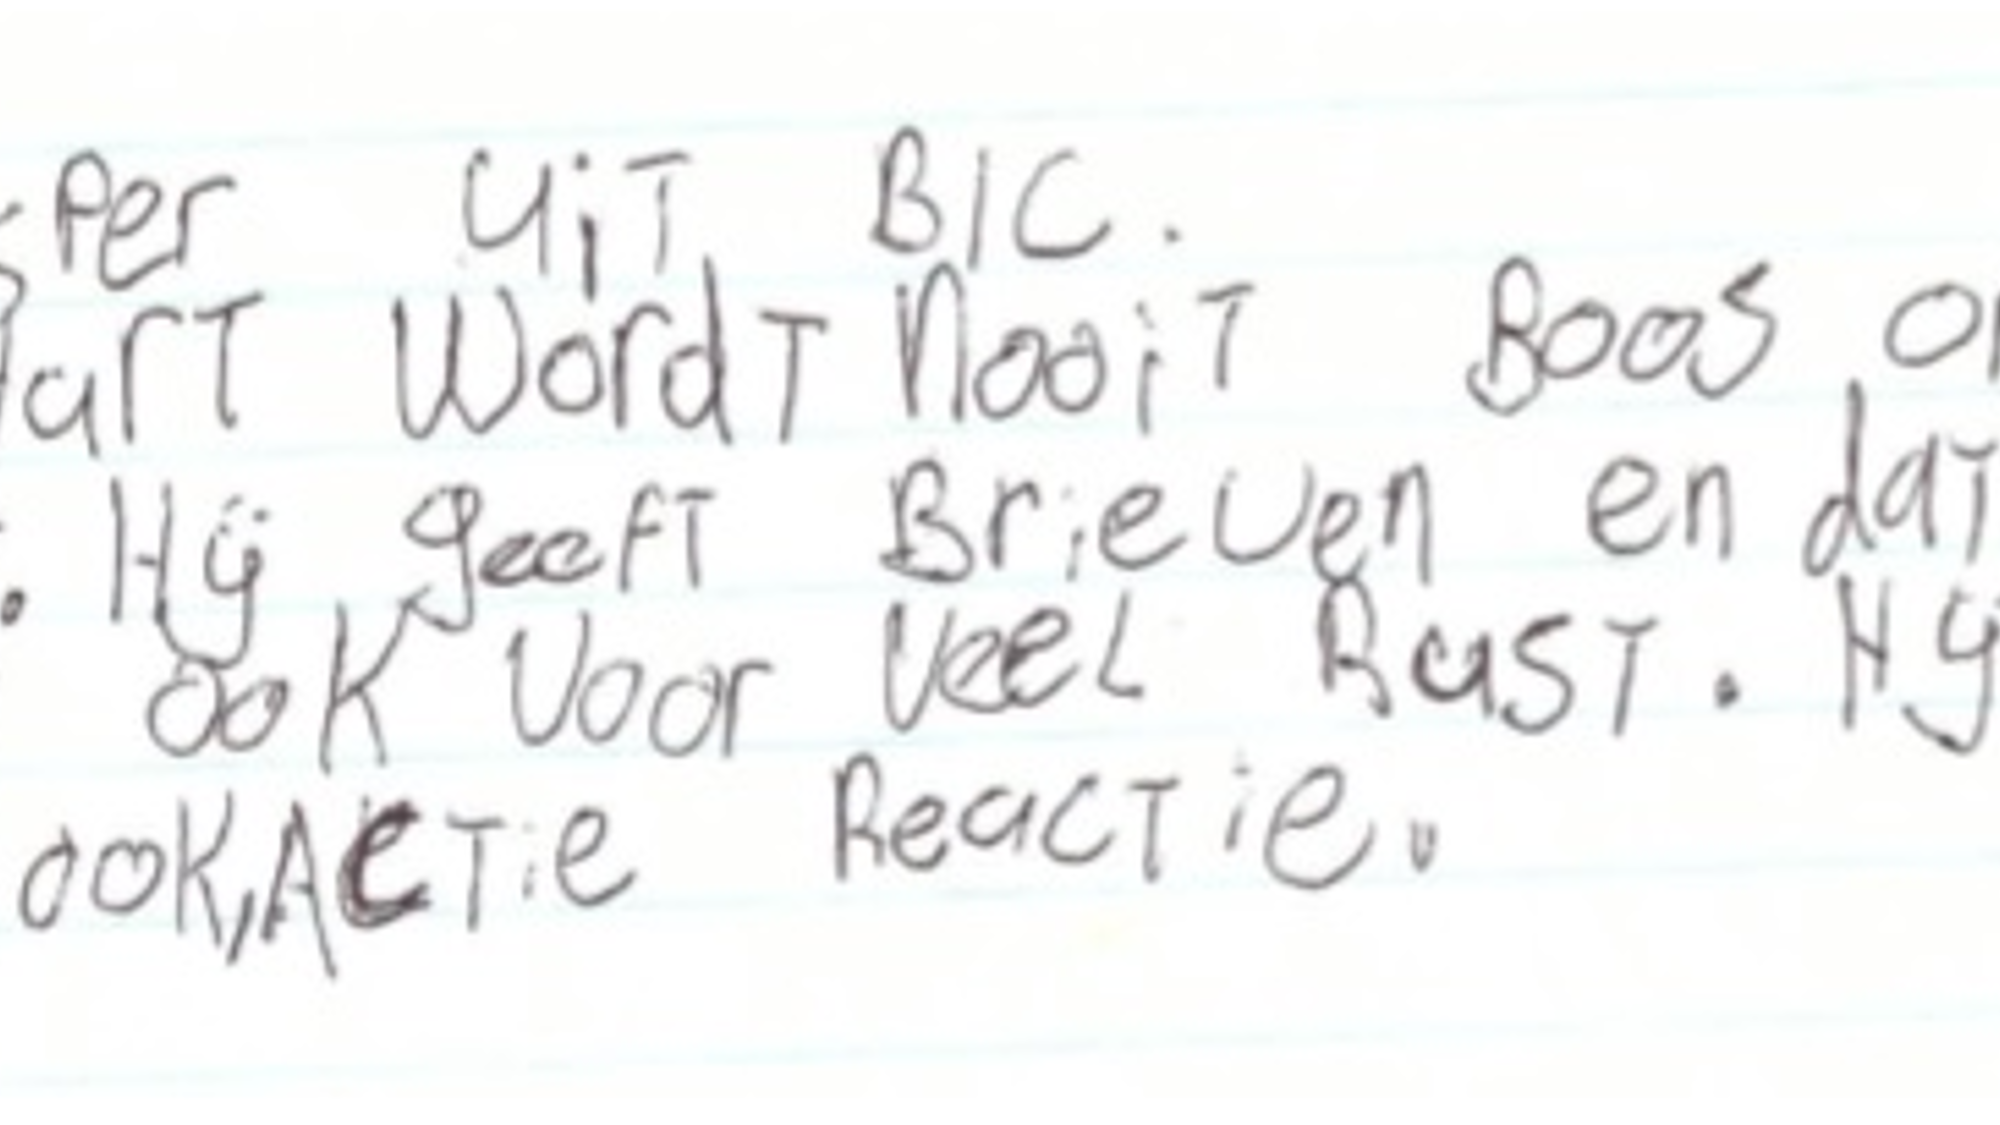 Per uit BIC.
art wordt nooit Boos
. Hij geeft Brieven en dat
ook voor veel Rust. Hij
ook, Actie Reactie.